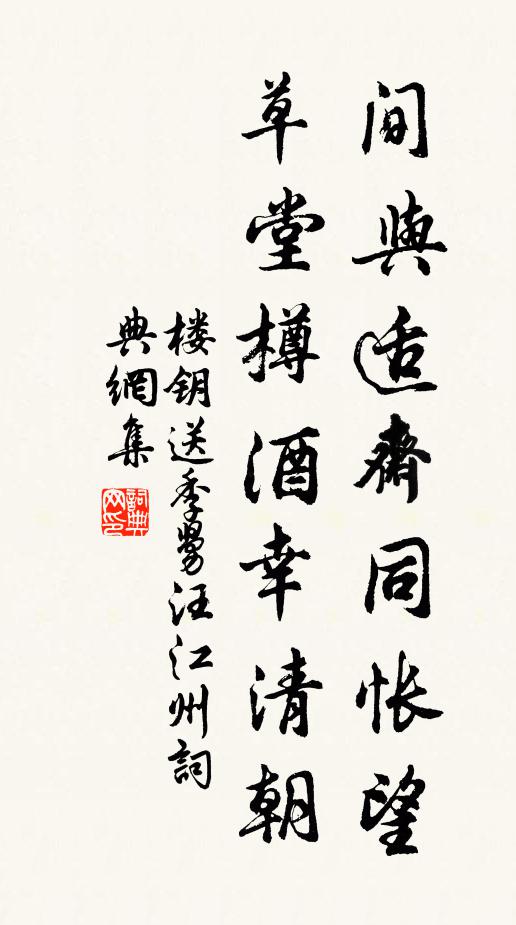 间與适齋同怅望
草堂樽酒幸清朝
楼钥送季舅汪江州詞
典網集
詞典
网印